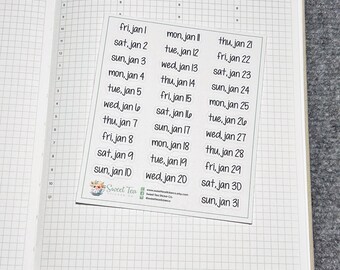 fri, jan 1
sat, jan 2
sun, jan 3
mon, jan 4
tue, jan 5
wed, jan 6
thu, jan 7
fri, jan 8
sat, jan 9
sun, jan 10
mon, jan 11
tue, jan 12
wed, jan 13
thu, jan 14
fri, jan 15
sat, jan 16
sun, jan 17
mon, jan 18
tue, jan 19
wed, jan 20
thu, jan 21
fri, jan 22
sat, jan 23
sun, jan 24
mon, jan 25
tue, jan 26
wed, jan 27
thu, jan 28
fri, jan 29
sat, jan 30
sun, jan 31
Sweet Tea